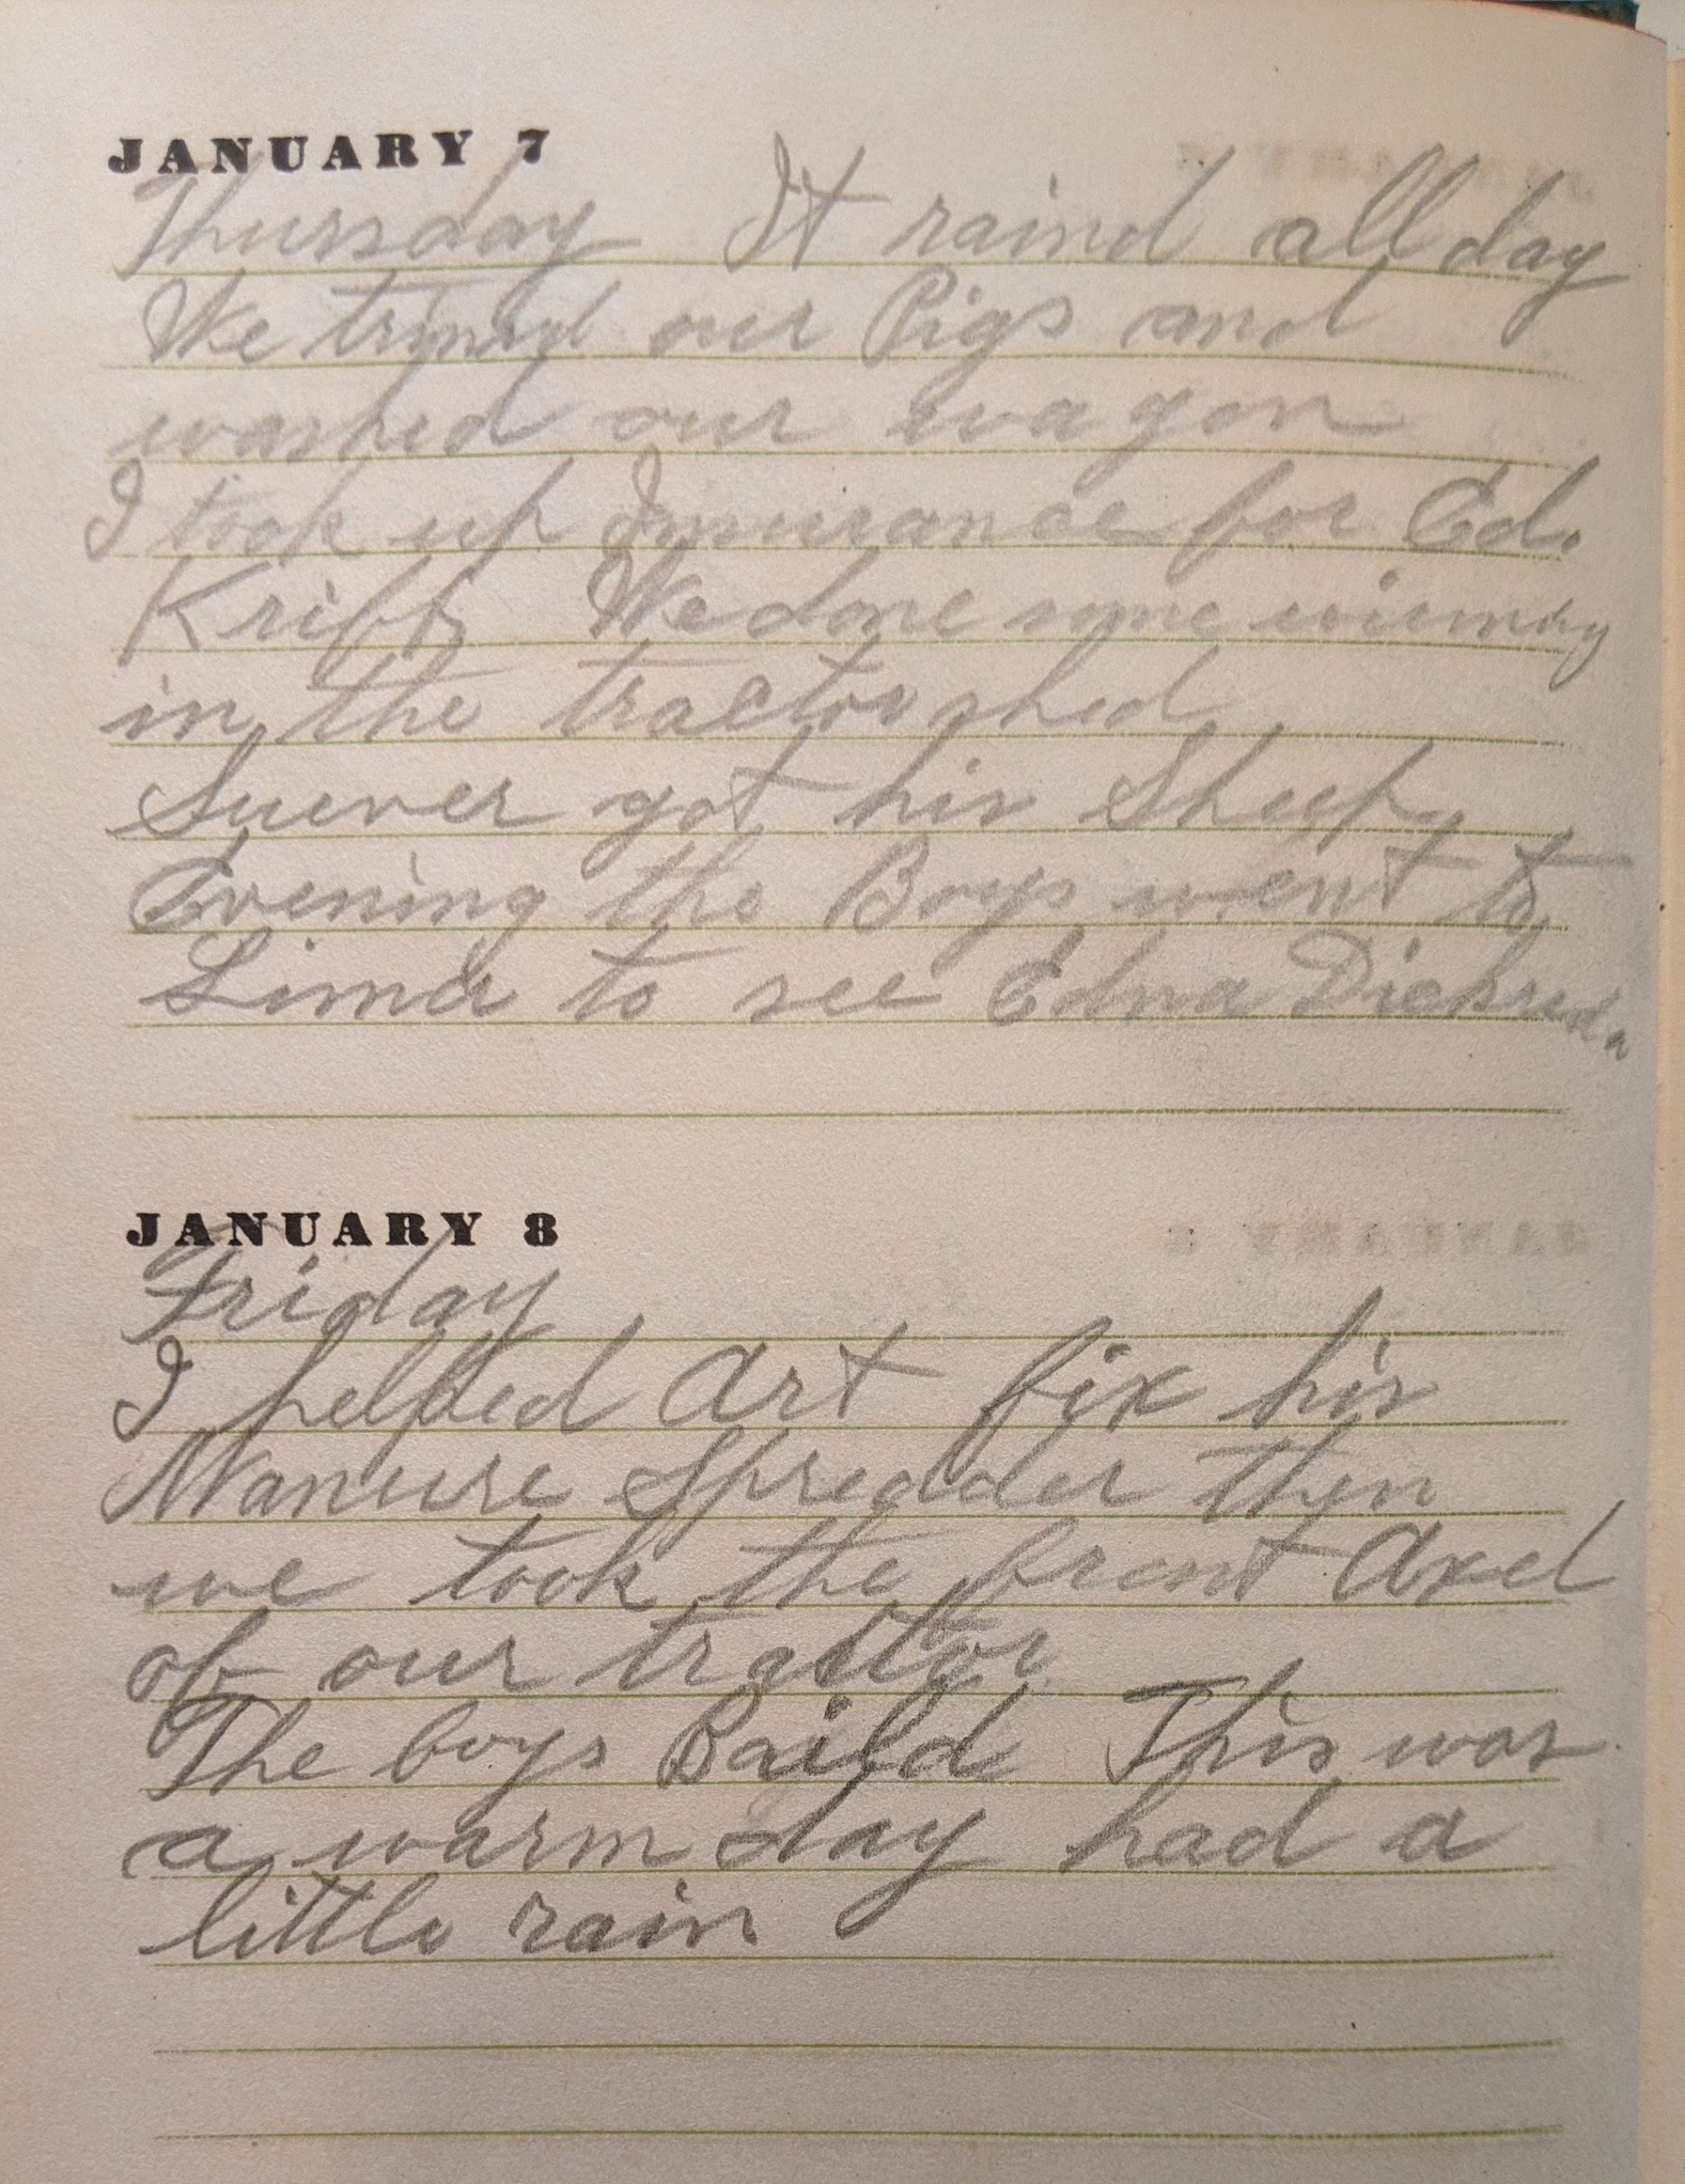 JANUARY 7
Thursday It raind all day
We trimed our Pigs and
washed our wagon
I took up Insurance for Ed.
Kriff We done some wirering
in the tractor shed
Suever got his Sheep
Evening the Boys went to
Lima to see Edna
JANUARY 8
Friday
I helped Art fix his
Manure Spreader then
we took the front Axel
of our tractor
The boys Baild This was
a warm day had a
little rain